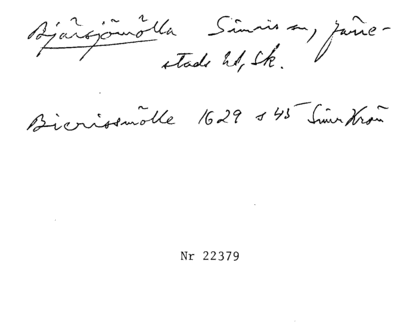 Bjärsjömölla Simris sn, Järre-
stads hd, Sk.
Bierissmölle 1629 s 45 Simr
Nr 22379